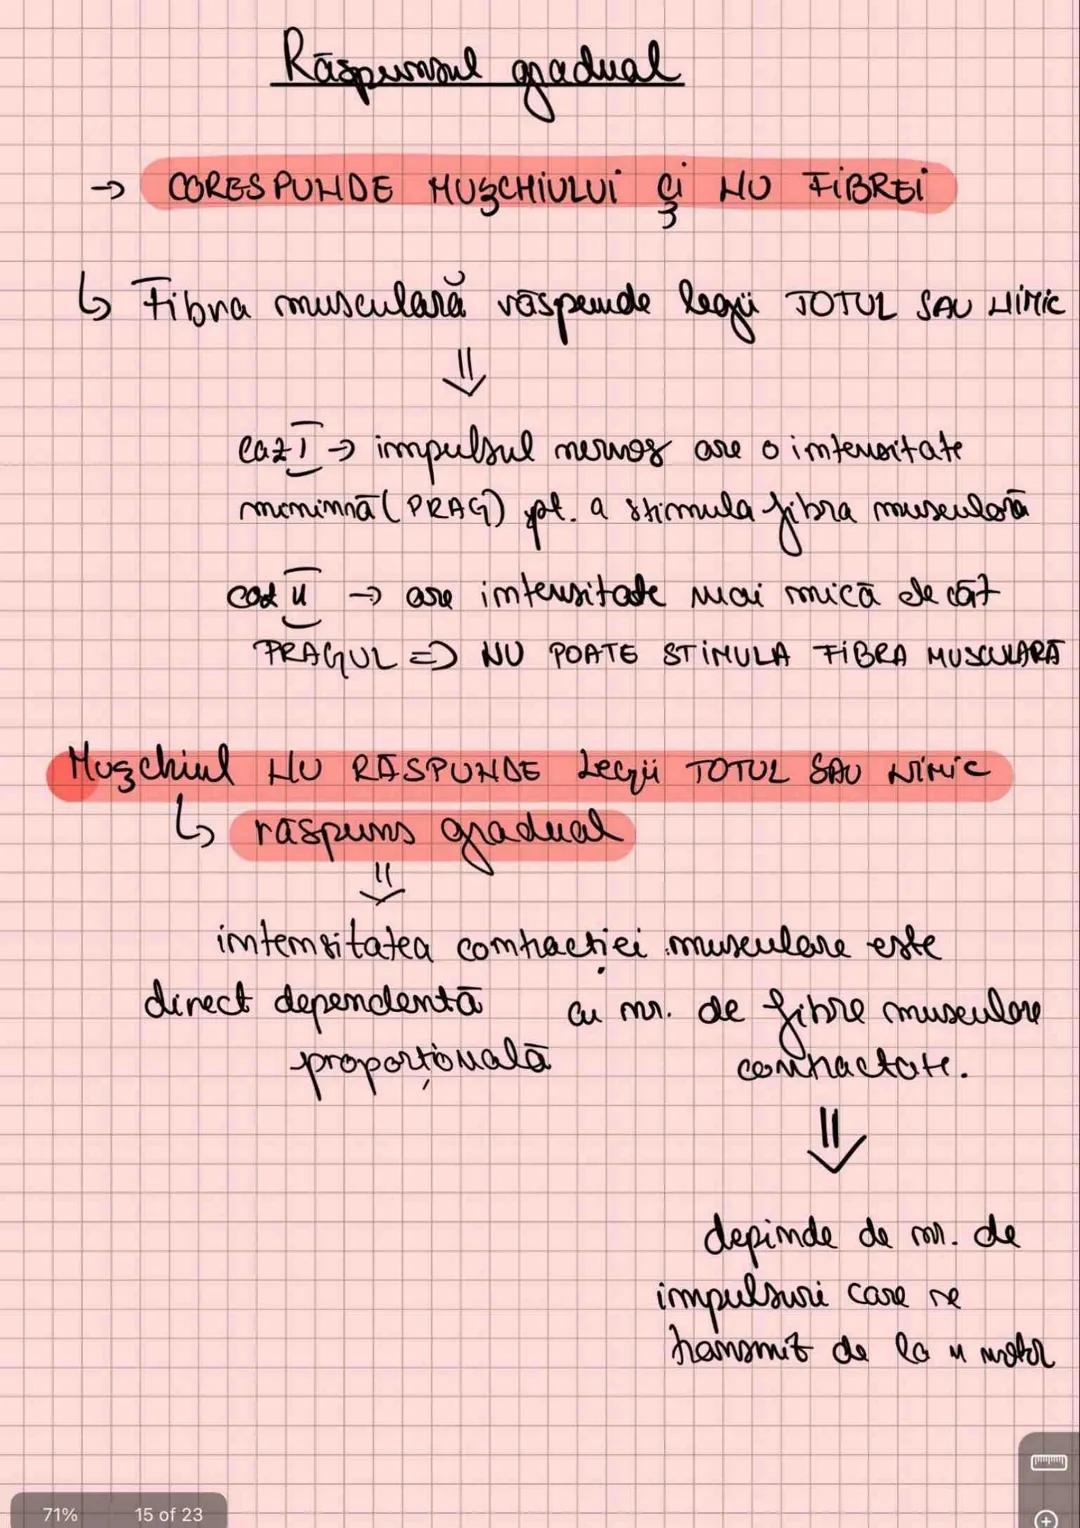 Răspunsul gradual
→ CORESPUNDE MUȘCHIULUI ȘI NU FIBREI
↳ Fibra musculară răspunde legii TOTUL SAU NIMIC
⇓
caz I → impulsul nervos are o intensitate
minimă (PRAG) pt. a stimula fibra musculară
caz II → are intensitate mai mică de cât
PRAGUL => NU POATE STIMULA FIBRA MUSCULARĂ
Mușchiul NU RĂSPUNDE Legii TOTUL SAU NIMIC
↳ răspuns gradual
⇓
intensitatea contracției musculare este
direct dependentă cu nr. de fibre musculare
proporțională contractate.
⇓
depinde de nr. de
impulsuri care se
transmit de la n motor
71% 15 of 23